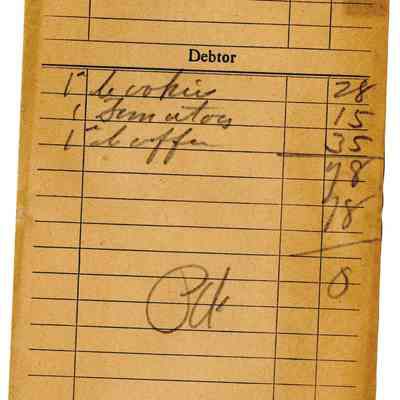 Debtor
1# Cookies 28
1 Tomatoes 15
1# Coffee 35
78
78
0
Pd